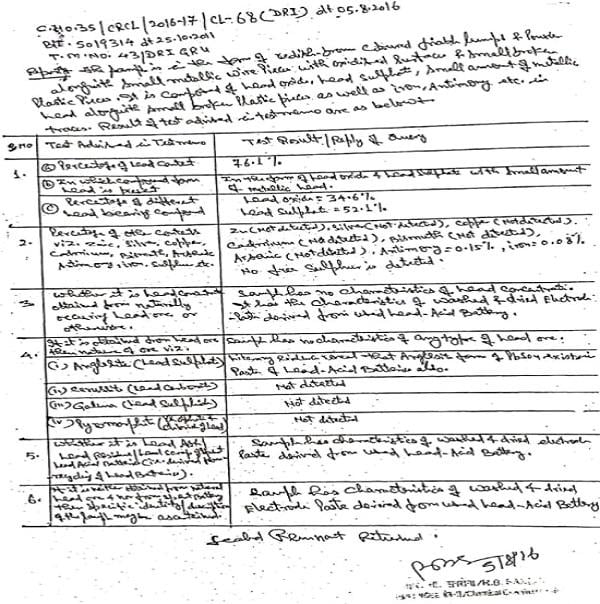 C.No.35/CRCL/2016-17/CL-68(DRI) dt 05.8.2016
B/E. 5019314 dt 25.10.2011
T.M.No. 43/DRI GRU
Report:- The sample is in the form of redish-brown coloured friable lumps & Powder
alongwith small metallic wire Pieces with oxidised surfaces & small broken
Plastic Pieces. It is composed of Lead oxide, Lead Sulphate, small amount of metallic
Lead alongwith small broken Plastic pieces as well as iron, Antimony etc. in
traces. Result of test advised in test memo are as below:-
S.No Test Advised in Test memo Test Result/Reply of Query
1. (a) Percentage of Lead content 76.1%
(b) In which compound form Lead is present In the form of Lead oxide & Lead Sulphate with small amount of metallic Lead.
(c) Percentage of different Lead bearing compound Lead oxide = 34.6%
Lead Sulphate = 52.1%
2. Percentage of other contents Zn (Not detected), Silver (Not detected), Copper (Not detected),
viz. zinc, Silver, Copper, Cadmium (Not detected), Bismuth (Not detected),
Cadmium, Bismuth, Arsenic Arsenic (Not detected), Antimony = 0.15%, iron = 0.08%
Antimony, iron, Sulphur etc. No free Sulphur is detected.
3 Whether it is Lead concentrate Sample has no characteristics of Lead concentrate.
obtained from naturally It has the characteristics of washed & dried Electrode
occuring Lead ore or Paste derived from used Lead-Acid Battery.
otherwise.
4. If it is obtained from Lead ore Sample has no characteristics of any type of Lead ore.
then nature of ore viz.
(i) Anglesite (Lead Sulphate) reveal that Anglesite form of PbSO4 exist in
Paste of Lead-Acid Batteries also.
(ii) Cerussite (Lead Carbonate) Not detected
(iii) Galena (Lead Sulphide) Not detected
(iv) Pyromorphite Not detected
5. Whether it is Lead Ash/ Sample has characteristics of washed & dried electrode
Lead Residue/ Paste derived from used Lead-Acid Battery.
Lead Acid Batteries
recycling of Lead Batteries).
6. If it is neither obtained from natural Sample has characteristics of washed & dried
Lead ore & nor from Battery Electrode Paste derived from used Lead-Acid Battery
then specific identity/description
of the sample may be ascertained.
Sealed Remnant Returned.
5/8/16